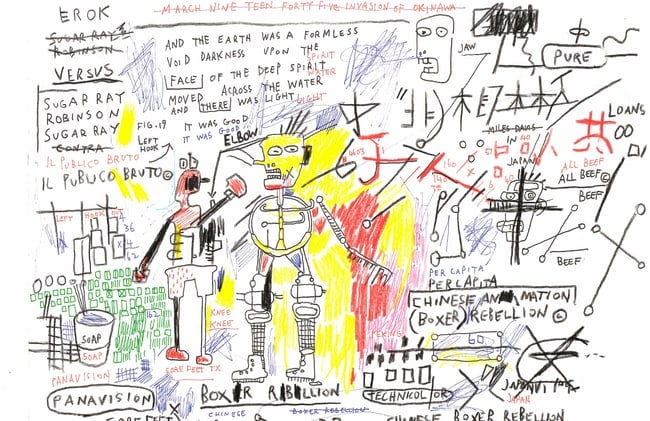 EROK
MARCH NINE TEEN FORTY FIVE INVASION OF OKINAWA
SUGAR RAY
ROBINSON
VERSUS
SUGAR RAY
ROBINSON
SUGAR RAY
CONTRA
IL PUBLICO BRUTO
IL PUBLICO BRUTO©
AND THE EARTH WAS A FORMLESS
VOID DARKNESS UPON THE
SPIRIT
FACE OF THE DEEP SPIRIT
WATER
MOVED ACROSS THE WATER
AND THERE WAS LIGHT LIGHT
IT WAS GOOD
IT WAS GOOD
FIG.19
LEFT
HOOK
ELBOW
JAW
PURE
LOANS
MILES DAVIS
IN
JAPAN
ALL BEEF
ALL BEEF©
BEEF
BEEF
LEFT HOOK
36
X 4
62
162
SOAP
SOAP
PANAVISION
PANAVISION
KNEE
KNEE
SORE FEET TX
SORE FEET
X
BOXER REBELLION
CHINESE
BOXER REBELLION
PER CAPITA
PER CAPITA
CHINESE ANIMATION
(BOXER) REBELLION ©
PEKING
60
TECHNICOLOR
JAPAN
CHINESE BOXER REBELLION